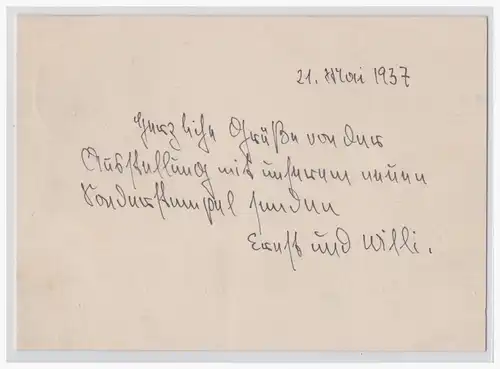 21. Mai 1937
Herzliche Grüße von der
Ausstellung mit unserem neuen
Sonderstempel senden
Ernst und Willi.